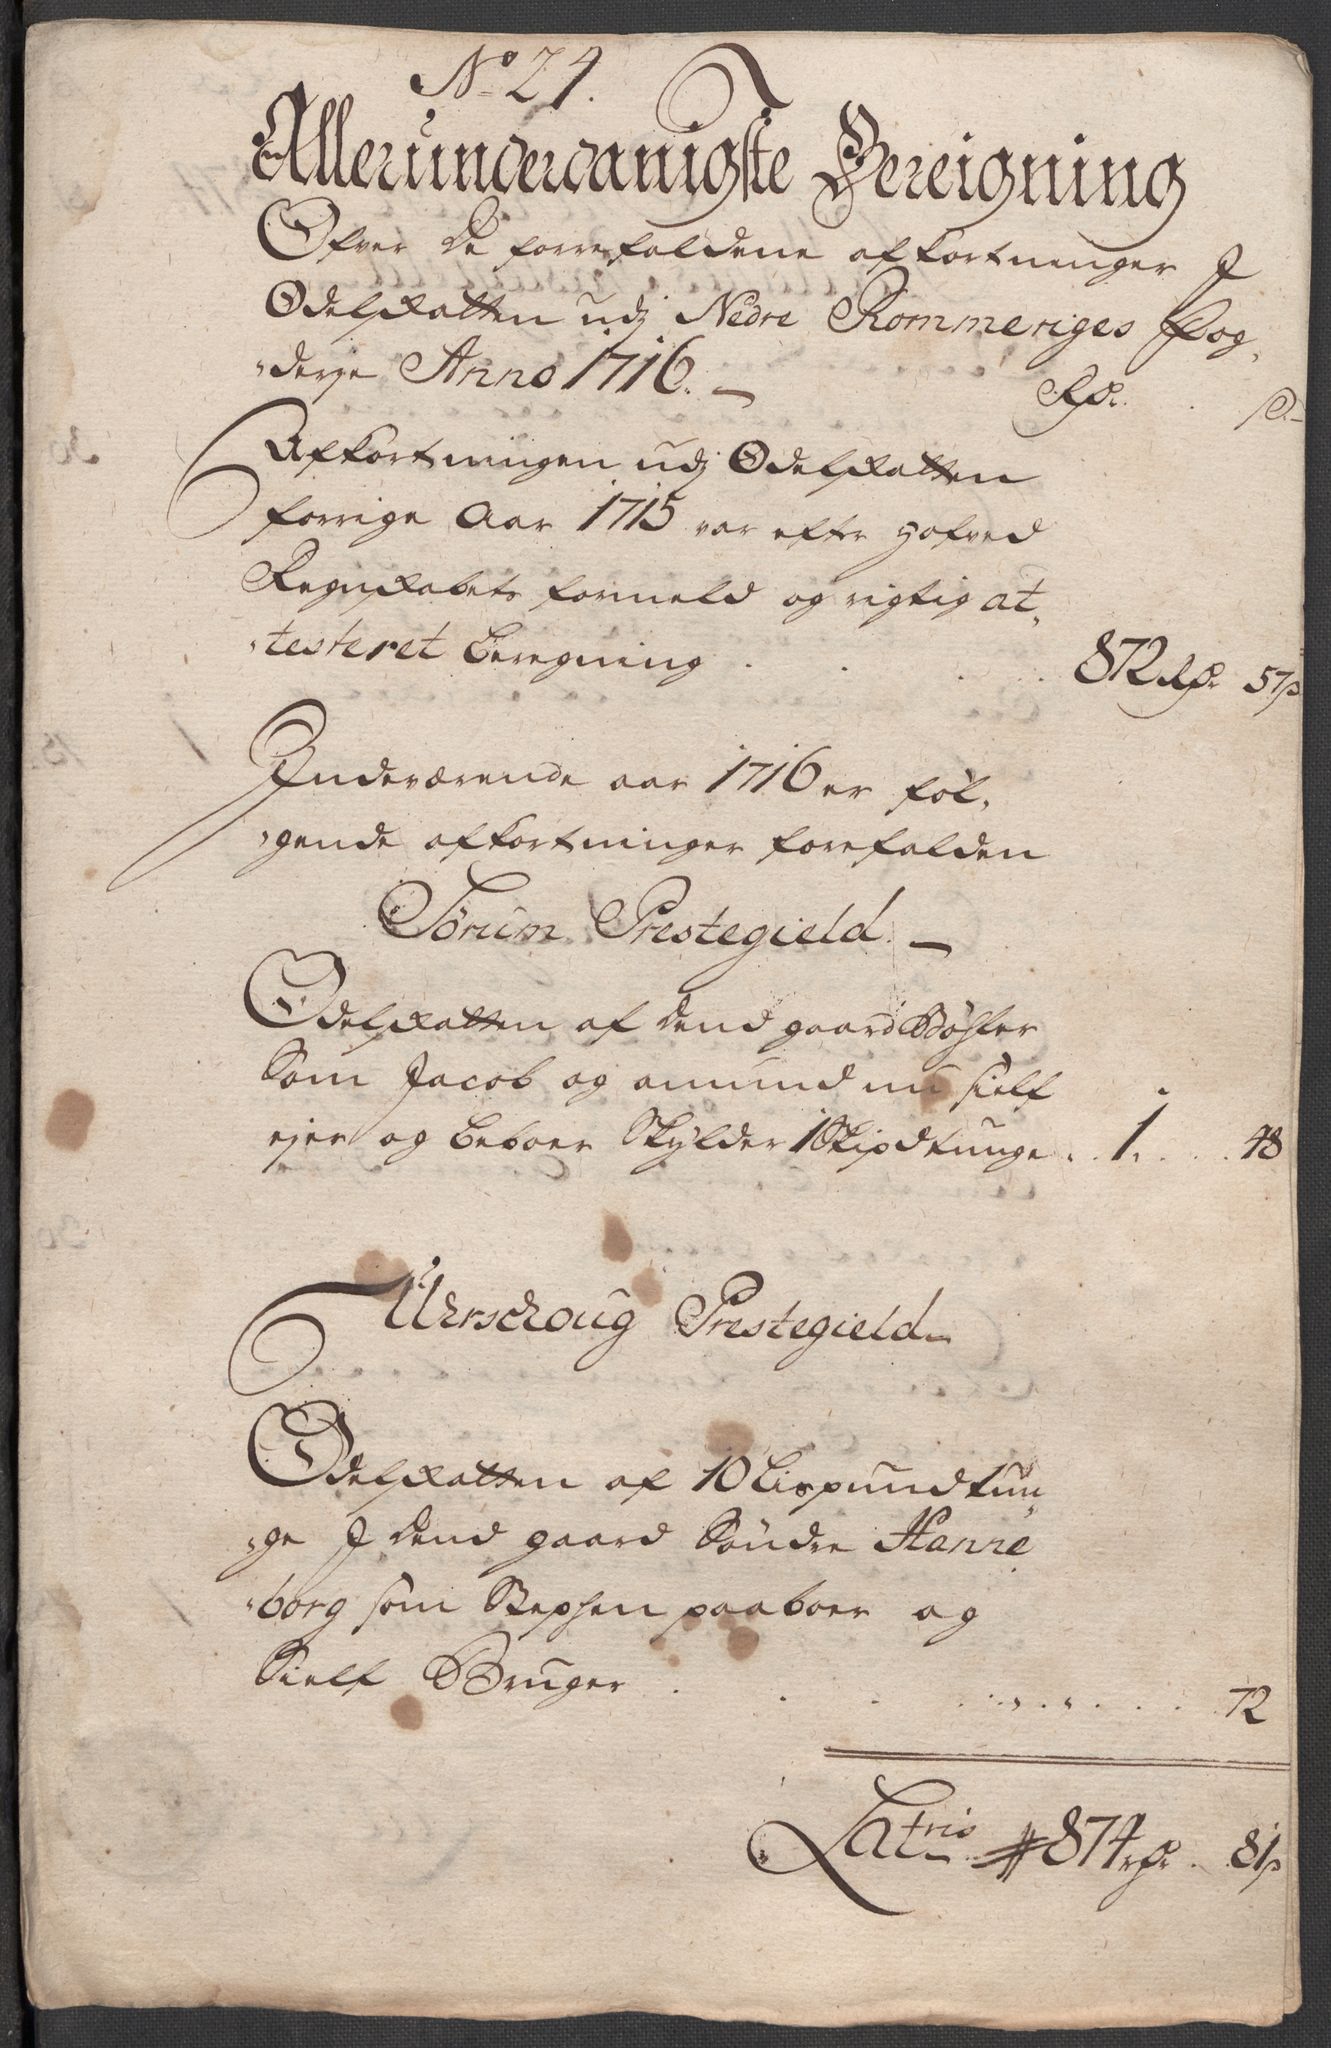 No 24.
Allerunderdanigste Bereigning
Ofver De forrefaldene afkortninger J
Odelskatten udj Nedre Rommeriges Fog-
-derje Anno 1716. Rdr. s.
Afkortningen udj Odelskatten
forrige Aar 1715 var efter hofved
Regnskabets formeld og rigtig at-
-testeret beregning . . . . 872 Rdr 57 s
Jndeværende aar 1716 er føl-
-gende afkortninger forefalden
Sørum Prestegield.
Odelskatten af dend gaard
Som Jacob og Amund nu self
ejer og beboer Skylder 1 Skipdtunge . . 1. . . . 48
Urschoug Prestegield
Odelskatten af 10 Lispundtun-
-ge J dend gaard Søndre Hanne-
-borg som Stephen paaboer og
Sielf Bruger . . . . . . . . 72
Latris # 874 rdr . . 81 s